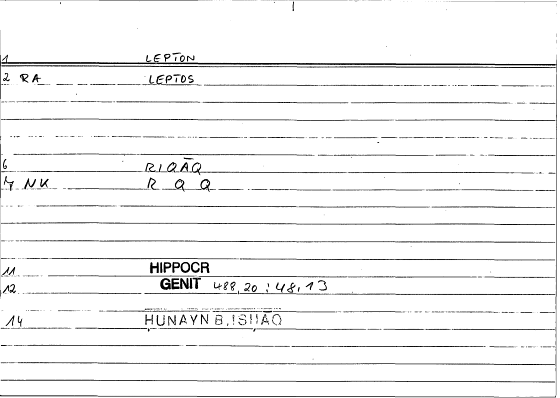 1 LEPTON
2 RA LEPTOS
6 RIQĀQ
7 NK R Q Q
11 HIPPOCR
12 GENIT 488,20 : 48,13
14 ḤUNAYN B. ISḤĀQ